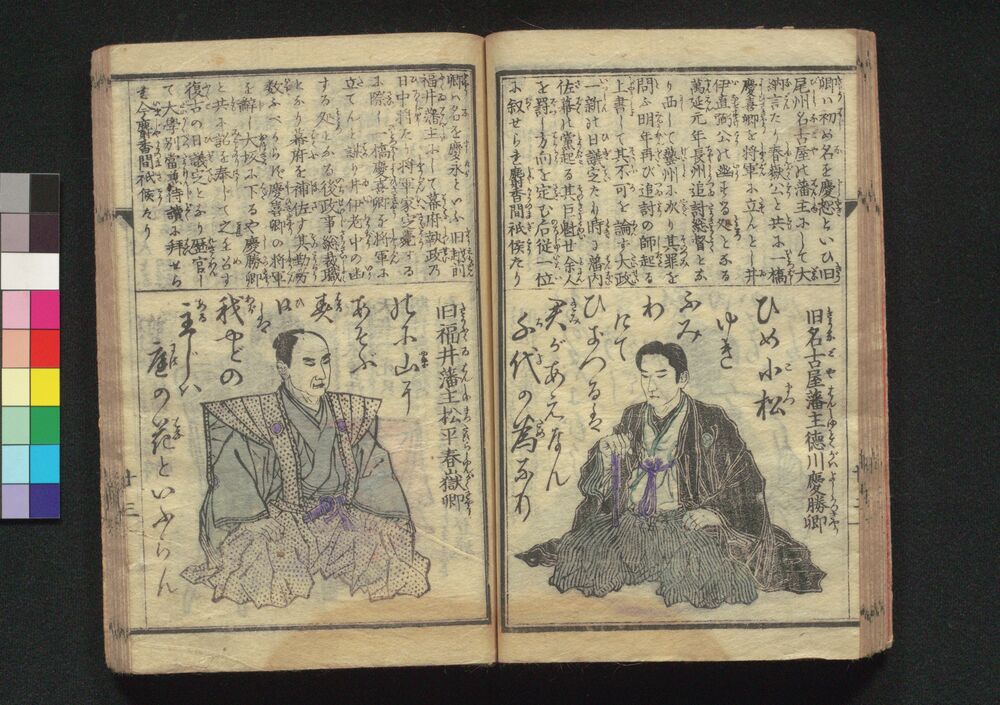 卿ハ初め名を慶恕といひ旧
尾州名古屋の藩主にして大
納言たり春嶽公と共に一橋
慶喜卿を将軍に立んとし井
伊直弼公の遮る処となる
萬延元年長州追討総督とな
り西して藝州に次り其罪を
問ふ明年再び追討の師起る
上書して其不可を論す大政
一新の日議定たり時に藩内
佐幕の黨起る其巨魁廿余人
を罰し方向を定む后従一位
に叙せらる麝香間祗候たり
旧名古屋藩主徳川慶勝卿
ひめ小松
ゆき
ふみ
わ
けて
ひきつるは
君があえなん
千代の為なり
卿ハ名を慶永といふ旧越前
福井藩主にして幕府執政の
日中将たり将軍家定薨する
に際し一橋慶喜卿を将軍に
立てんと謀り井伊老中の由
する処となる後政事総裁職
となり幕府を補佐す其勤功
数ふべからす慶喜卿の将軍
を辞し大坂に下るや慶勝卿
と共に詔を奉して之を召す
復古の日議定となり歴官し
て大学別當兼侍讀に拝せら
る今麝香間祗候たり
旧福井藩主松平春嶽卿
野に山に
あそぶ
春
日は
我やどの
主じハ
庭の花といふらん
十三